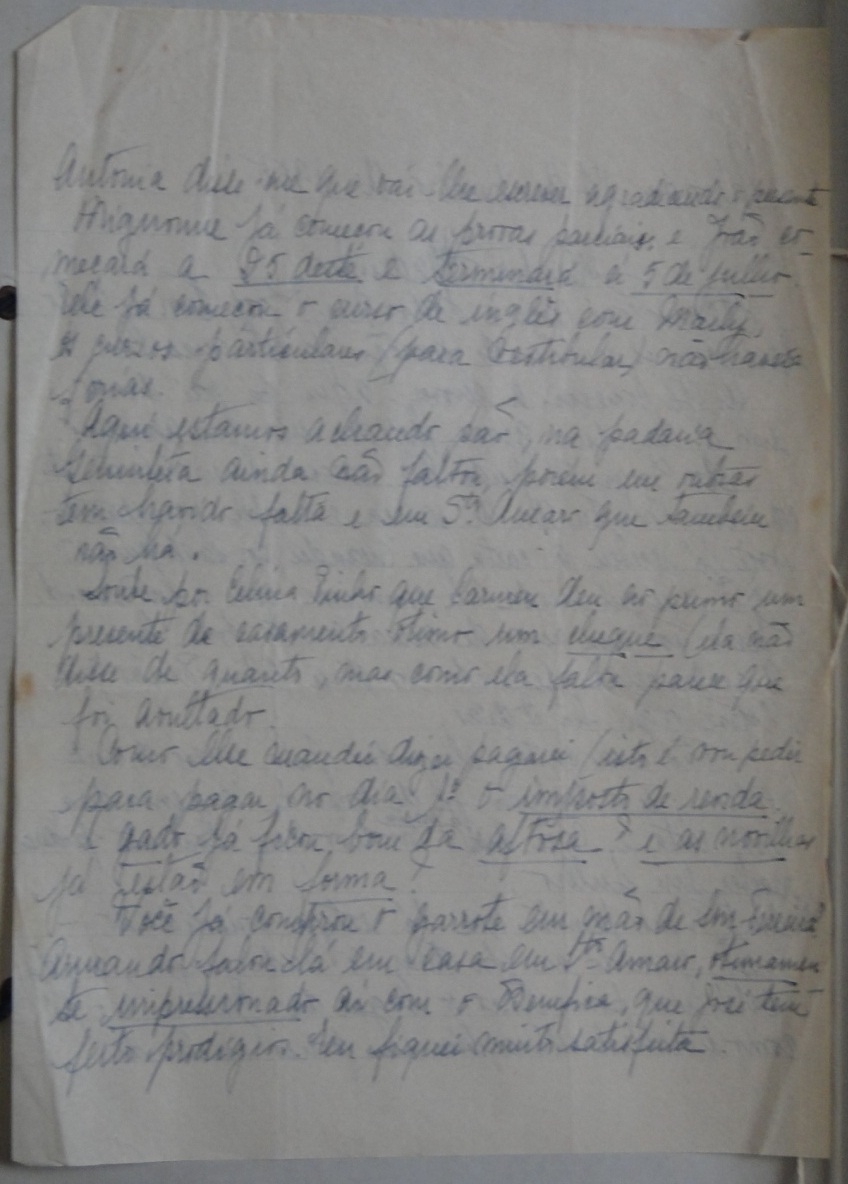 Antonia disse-me que vai lhe escrever agradecendo o presente
Mignonne já começou as provas parciais, e João co-
meçará a 25 deste e terminará a 5 de julho.
Ele já começou o curso de inglês com
os cursos particulares (para vestibular) não haverá
férias.
Aqui estamos achando pão, na padaria
ainda não faltou, porem em outras
tem havido falta e em Sto. Amaro que tambem
não há.
Soube por Celina Pinho que Carmen deu ao primo um
presente de casamento otimo um cheque (ela não
disse de quanto, mas como ela falou parece que
foi avultado.
Como lhe mandei dizer paguei (isto é vou pedir
para pagar no dia 1º o imposto de renda.
e gado já ficou bom da aftosa? e as novilhas
já estão em forma?
Você já comprou o garrote em mão de
Armando falou lá em casa em Sto. Amaro, otimamen
te impressionado ai com o Benfica, que José tem
feito prodigios. Eu fiquei muito satisfeita.